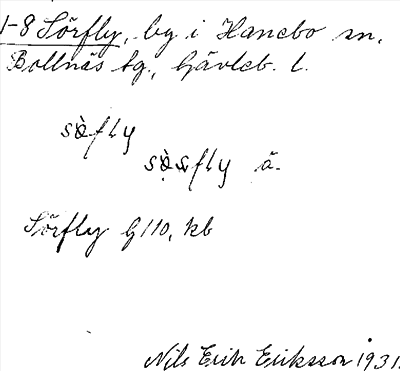 1-8 Sörfly, by i Hanebo sn,
Bollnäs tg., Gävleb. l.
sö̀fly
sö̀sfly ä.
Sörfly G 110, kb
Nils Erik Eriksson 1931.